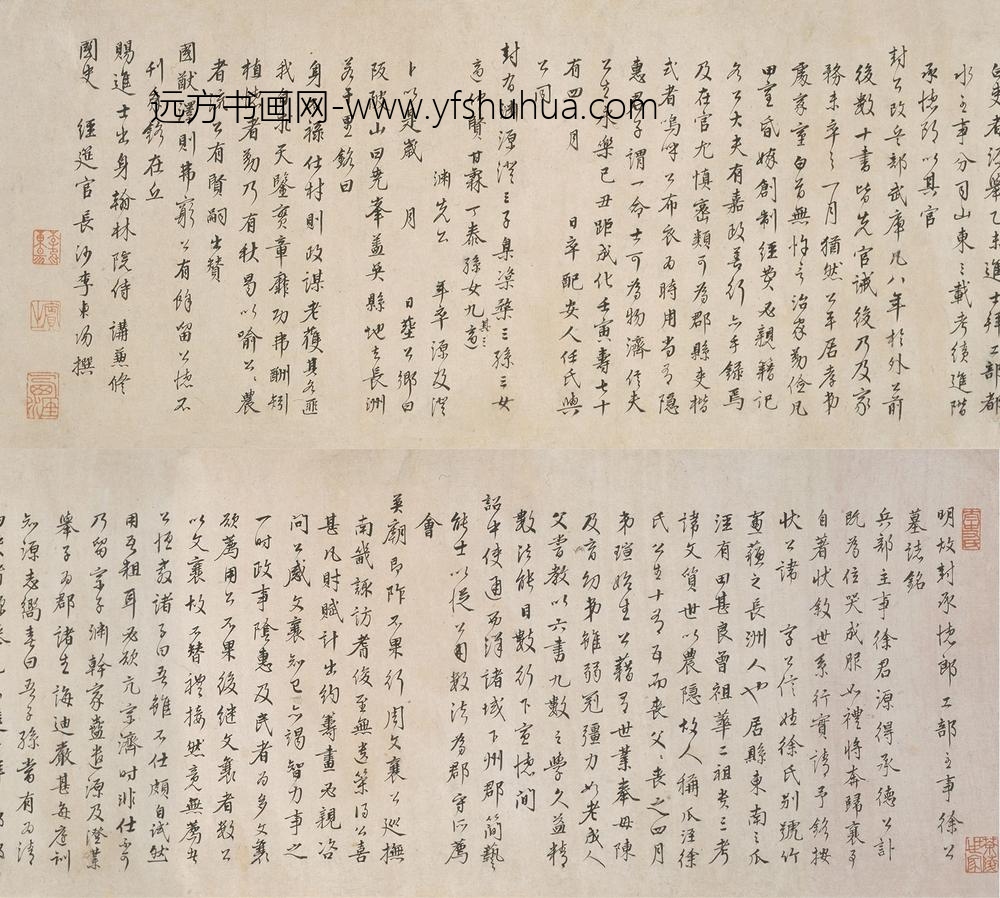 水主事分司山東三載考績進階
承德郎以其官
封公改兵部武庫凡八年於外公前
後數十書皆先官誡後乃及家
務未卒之一月猶然公平居孝弟
處家重白首無忤言治家勤儉凡
田童昏嫁創制經費必親籍記
名公大夫有嘉政善行亦手錄焉
及在官尤慎密類可為郡縣吏楷
式者嗚呼公布衣為時用當有隱
惠君子謂一命士可為物濟信夫
公生永樂己丑距成化壬寅壽七十
有四 月 日卒配安人任氏與
公同
封有 淵源澄三子臬渠桑三孫三女
適 杜賢甘霖丁泰孫女九其三適
淵先公 年卒源及澄
卜以是歲 月 日葬公鄉曰
陂 山曰堯峯益吳縣地去長洲
若干里銘曰
身不祿仕材則政謀老獲其名匪
我身求天鑒實章靡功弗酬矧
植德者勤乃有秋曷以喻公公農
者流公有賢嗣出贊
國猷澤則弗窮公有餘留公德不
刊 銘在丘
賜進士出身翰林院侍講兼修
國史 經筵官長沙李東陽撰
远方书画网-www.yfshuhua.com
明故封承德郎工部主事徐公
墓誌銘
兵部主事徐君源得承德公訃
既為位哭成服如禮將奔歸襄事
自著狀敘世系行實請予銘按
狀公諱 字公信姓徐氏別號竹
窗蘇之長洲人也居縣東南之瓜
涇有田甚良曾祖華二祖貴三考
諱文質世以農隱故人稱瓜涇徐
氏公生十有一年而喪父喪之四月
弟瑄始生公藉有世業奉母陳
及育幼弟雖弱冠彊力如老成人
父嘗教以六書九數之學久益精
數法能目數行下宣德間
詔中使通西洋諸域下州郡簡藝
能士以從公用數法為郡守所薦
會
英廟即阼不果行周文襄公巡撫
南畿諏訪耆俊至無遺策得公喜
甚凡財賦計出約籌畫必親咨
問公感文襄知己亦竭智力事之
一時政事陰惠及民者為多文襄
欲薦用公不果後繼文襄者數公
以文襄故不替禮接然竟無薦者
公恆教諸子曰吾雖不仕頗自試然
用吾粗耳必欲亢宗濟時非仕不可
乃留宗子淵幹家蠱遣源及澄業
舉子為郡諸生誨迪嚴甚每庭訓
知源志嚮喜曰吾子孫當有為清